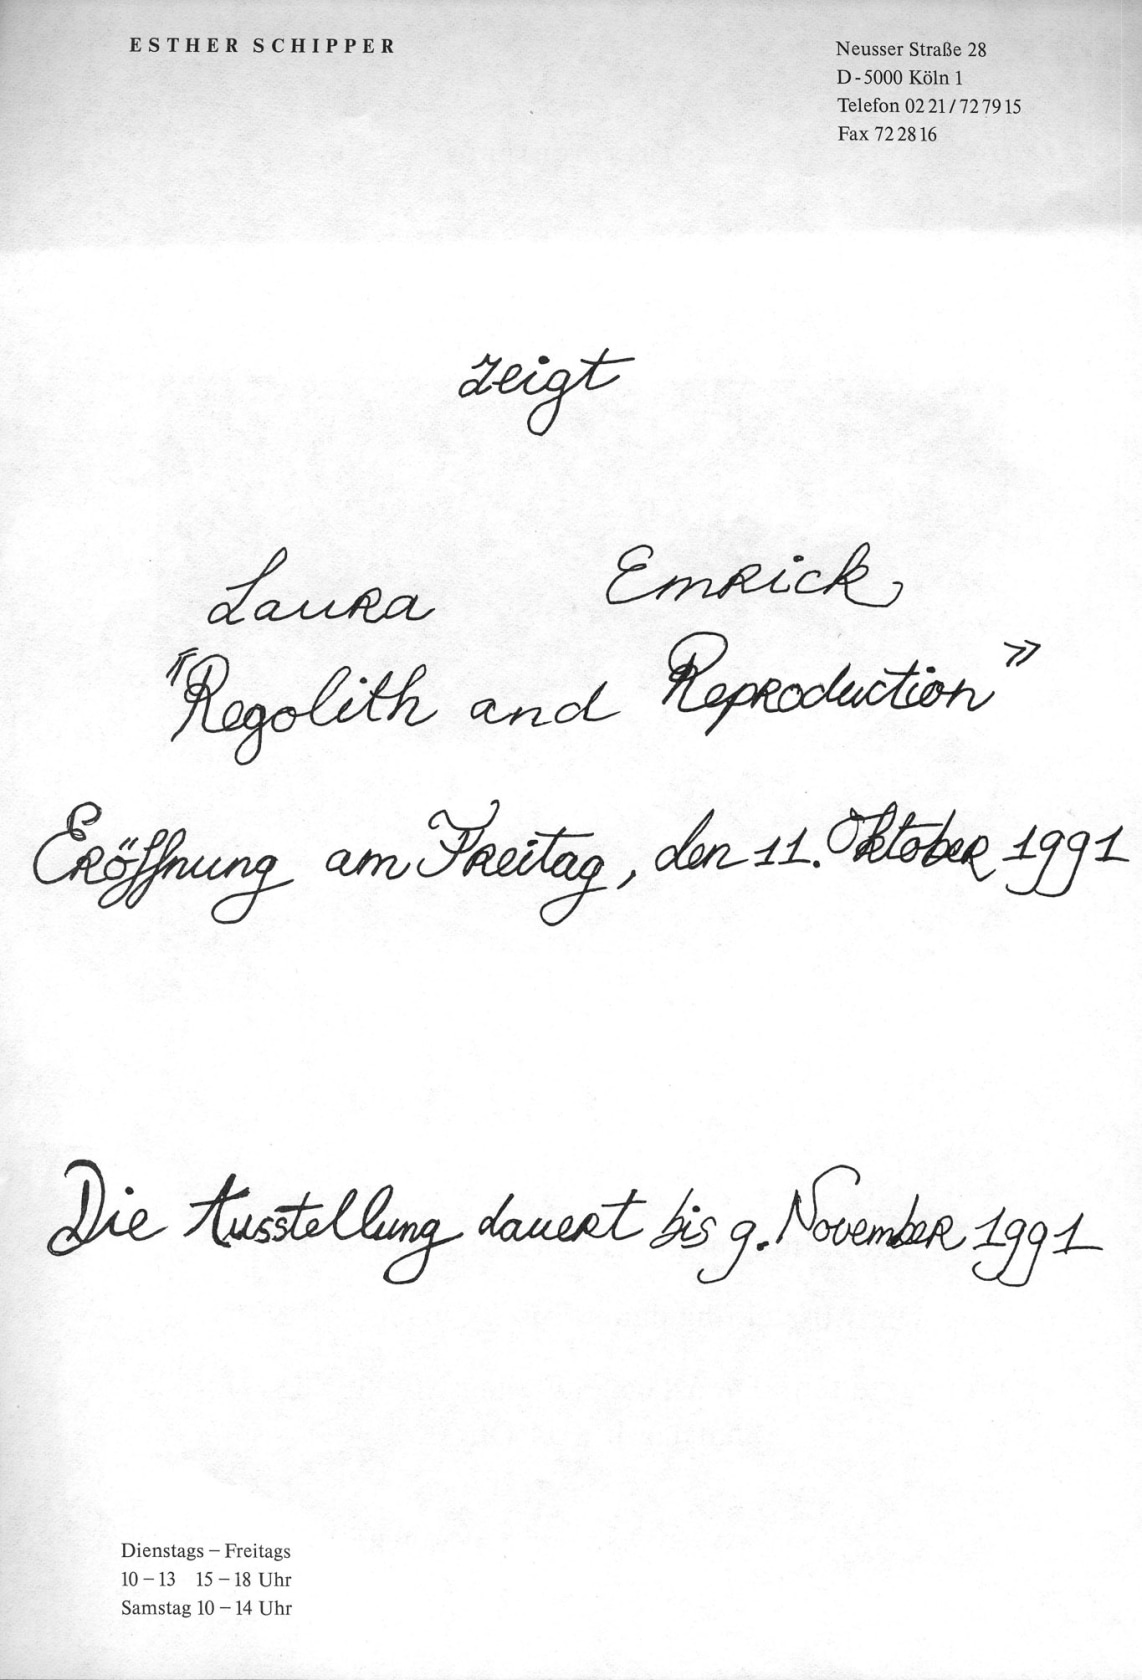 ESTHER SCHIPPER
Neusser Straße 28
D-5000 Köln 1
Telefon 02 21 / 72 79 15
Fax 72 28 16
zeigt
Laura Emrick
"Regolith and Reproduction"
Eröffnung am Freitag, den 11. Oktober 1991
Die Ausstellung dauert bis 9. November 1991
Dienstags – Freitags
10 – 13 15 – 18 Uhr
Samstag 10 – 14 Uhr